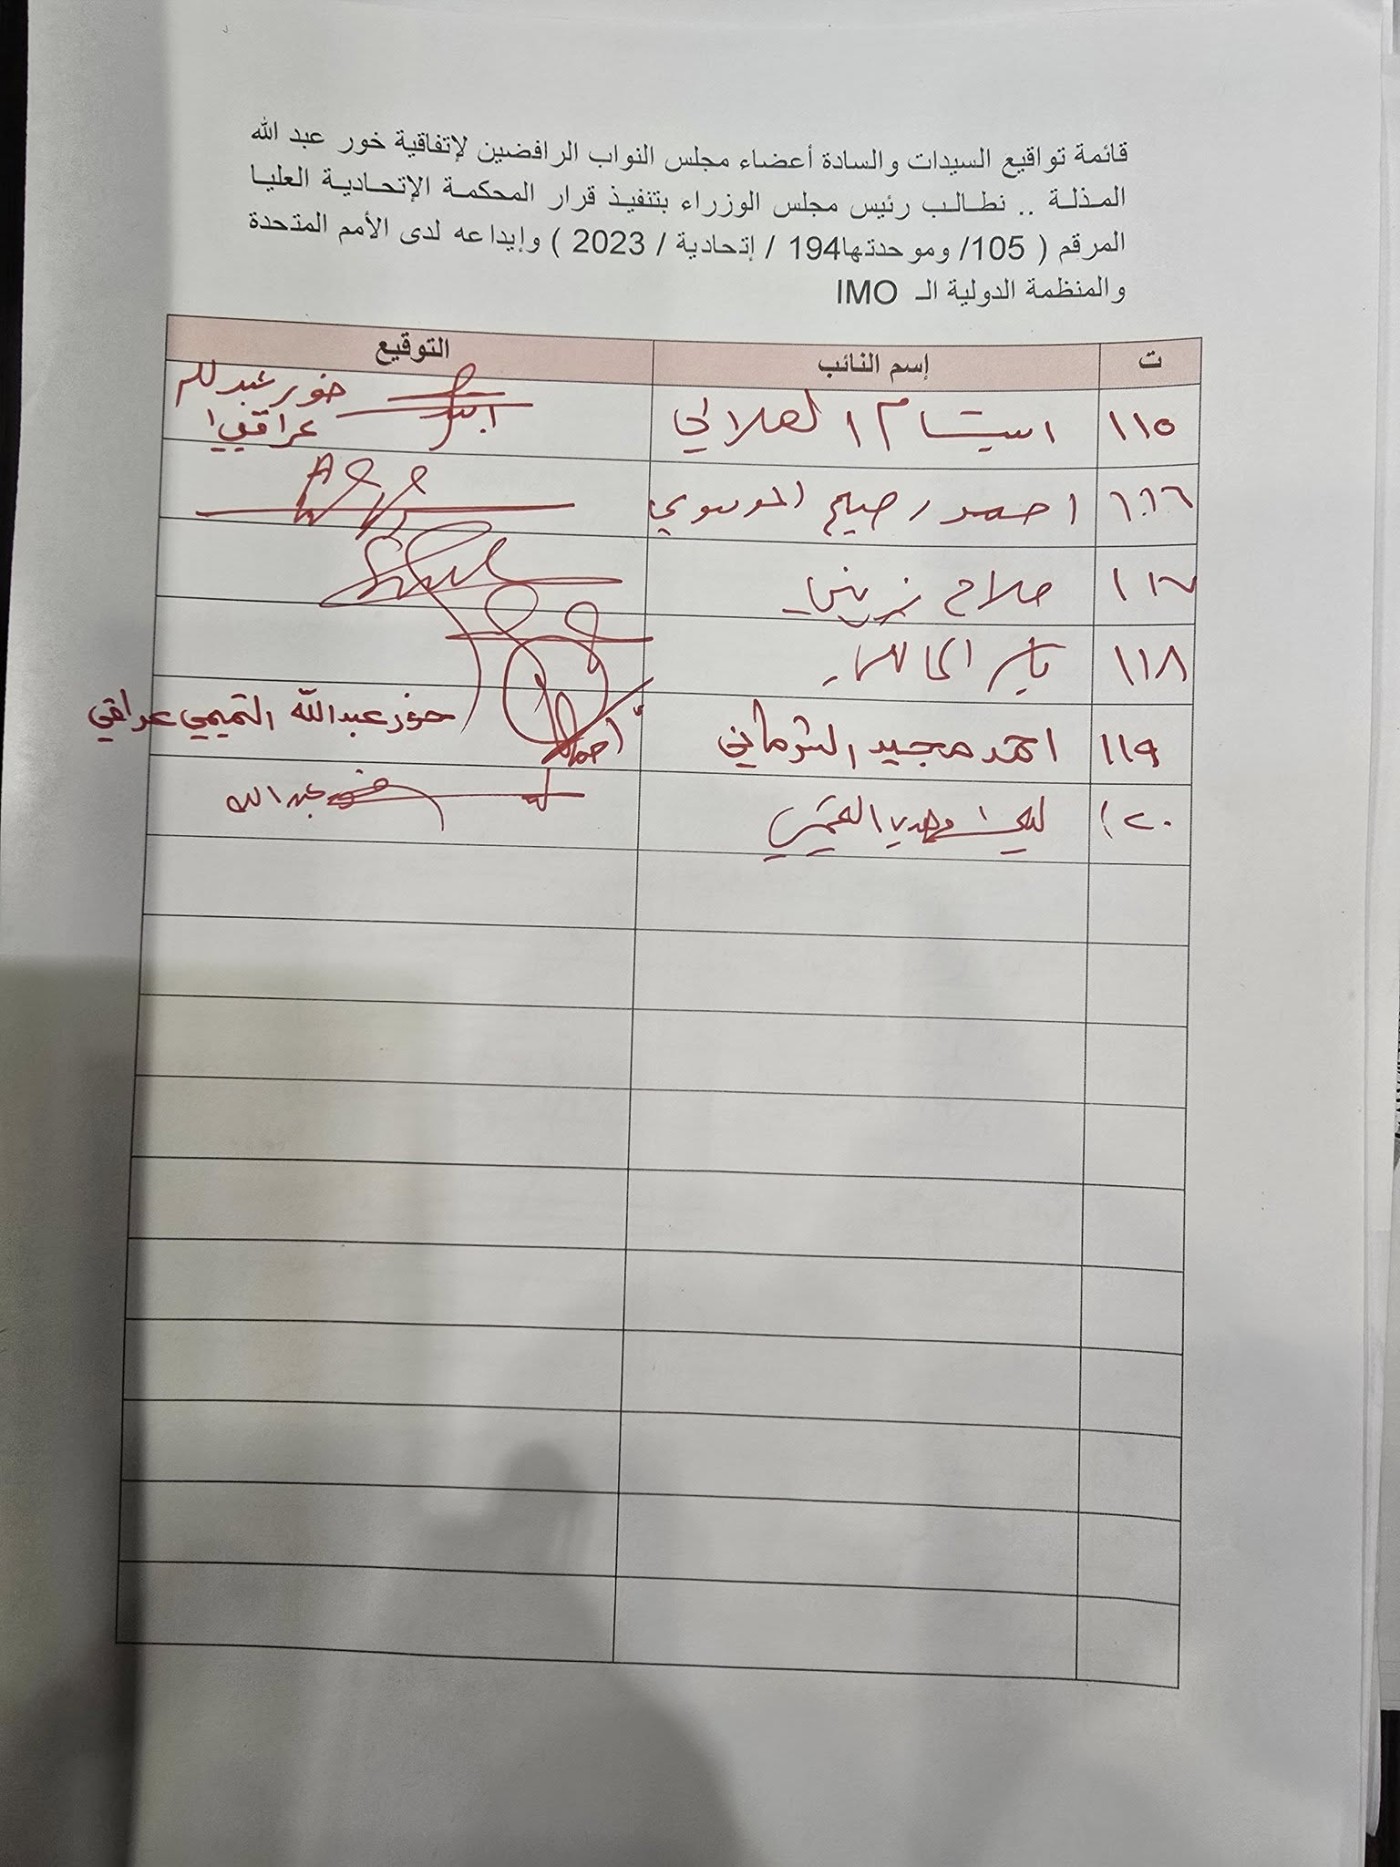 قائمة تواقيع السيدات والسادة أعضاء مجلس النواب الرافضين لإتفاقية خور عبد الله
المذلة .. نطالب رئيس مجلس الوزراء بتنفيذ قرار المحكمة الإتحادية العليا
المرقم ( 105/ وموحدتها194 / إتحادية / 2023 ) وإيداعه لدى الأمم المتحدة
والمنظمة الدولية الـ IMO
ت إسم النائب التوقيع
١١٥ ابتسام الهلالي خور عبد الله
عراقي
١١٦ احمد رحيم الموسوي
١١٧ صلاح زيني
١١٨ ياسر
١١٩ احمد مجيد الشرماني احمد خور عبد الله التميمي عراقي
١٢٠ ليلى التميمي خور عبد الله